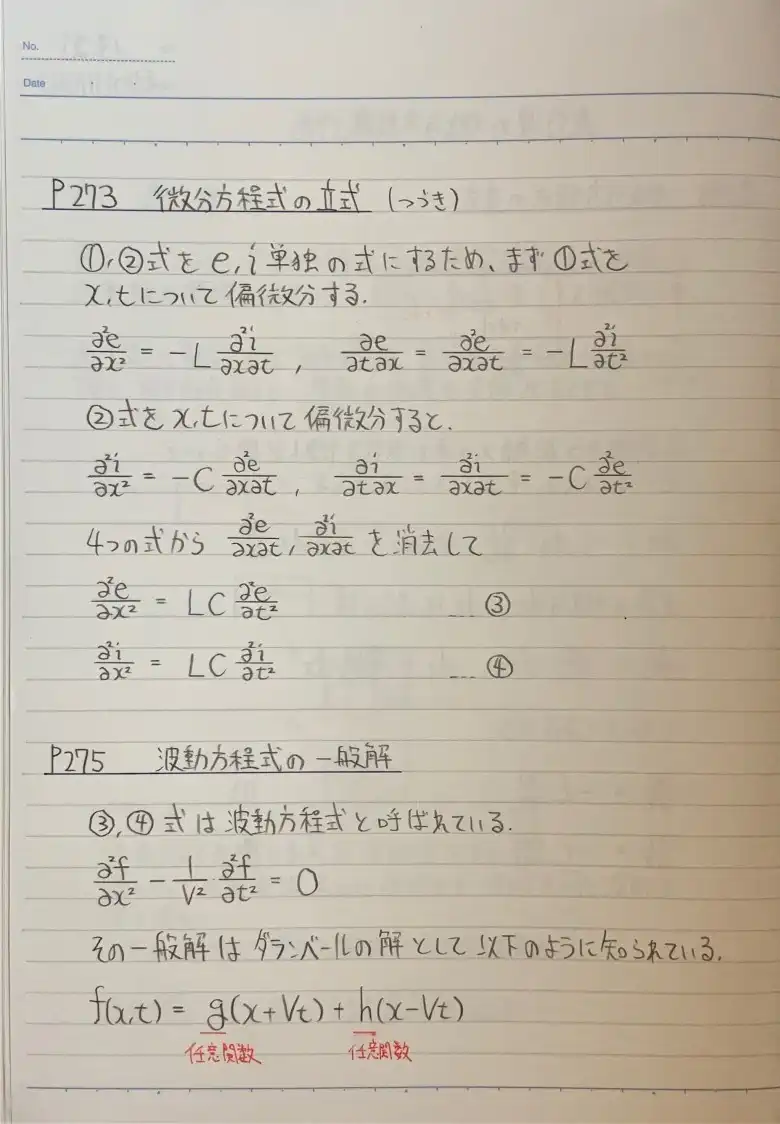 No.
Date
P273 微分方程式の立式 (つづき)
①,②式を e,i 単独の式にするため、まず①式を
x,tについて偏微分する.
∂²e/∂x² = -L ∂²i/∂x∂t , ∂e/∂t∂x = ∂²e/∂x∂t = -L ∂²i/∂t²
②式を x,tについて偏微分すると.
∂²i/∂x² = -C ∂²e/∂x∂t , ∂i/∂t∂x = ∂²i/∂x∂t = -C ∂²e/∂t²
4つの式から ∂²e/∂x∂t, ∂²i/∂x∂t を消去して
∂²e/∂x² = LC ∂²e/∂t² ... ③
∂²i/∂x² = LC ∂²i/∂t² ... ④
P275 波動方程式の一般解
③,④式は波動方程式と呼ばれている.
∂²f/∂x² - 1/V² ∂²f/∂t² = 0
その一般解はダランベールの解として以下のように知られている.
f(x,t) = g(x+Vt) + h(x-Vt)
任意関数 任意関数